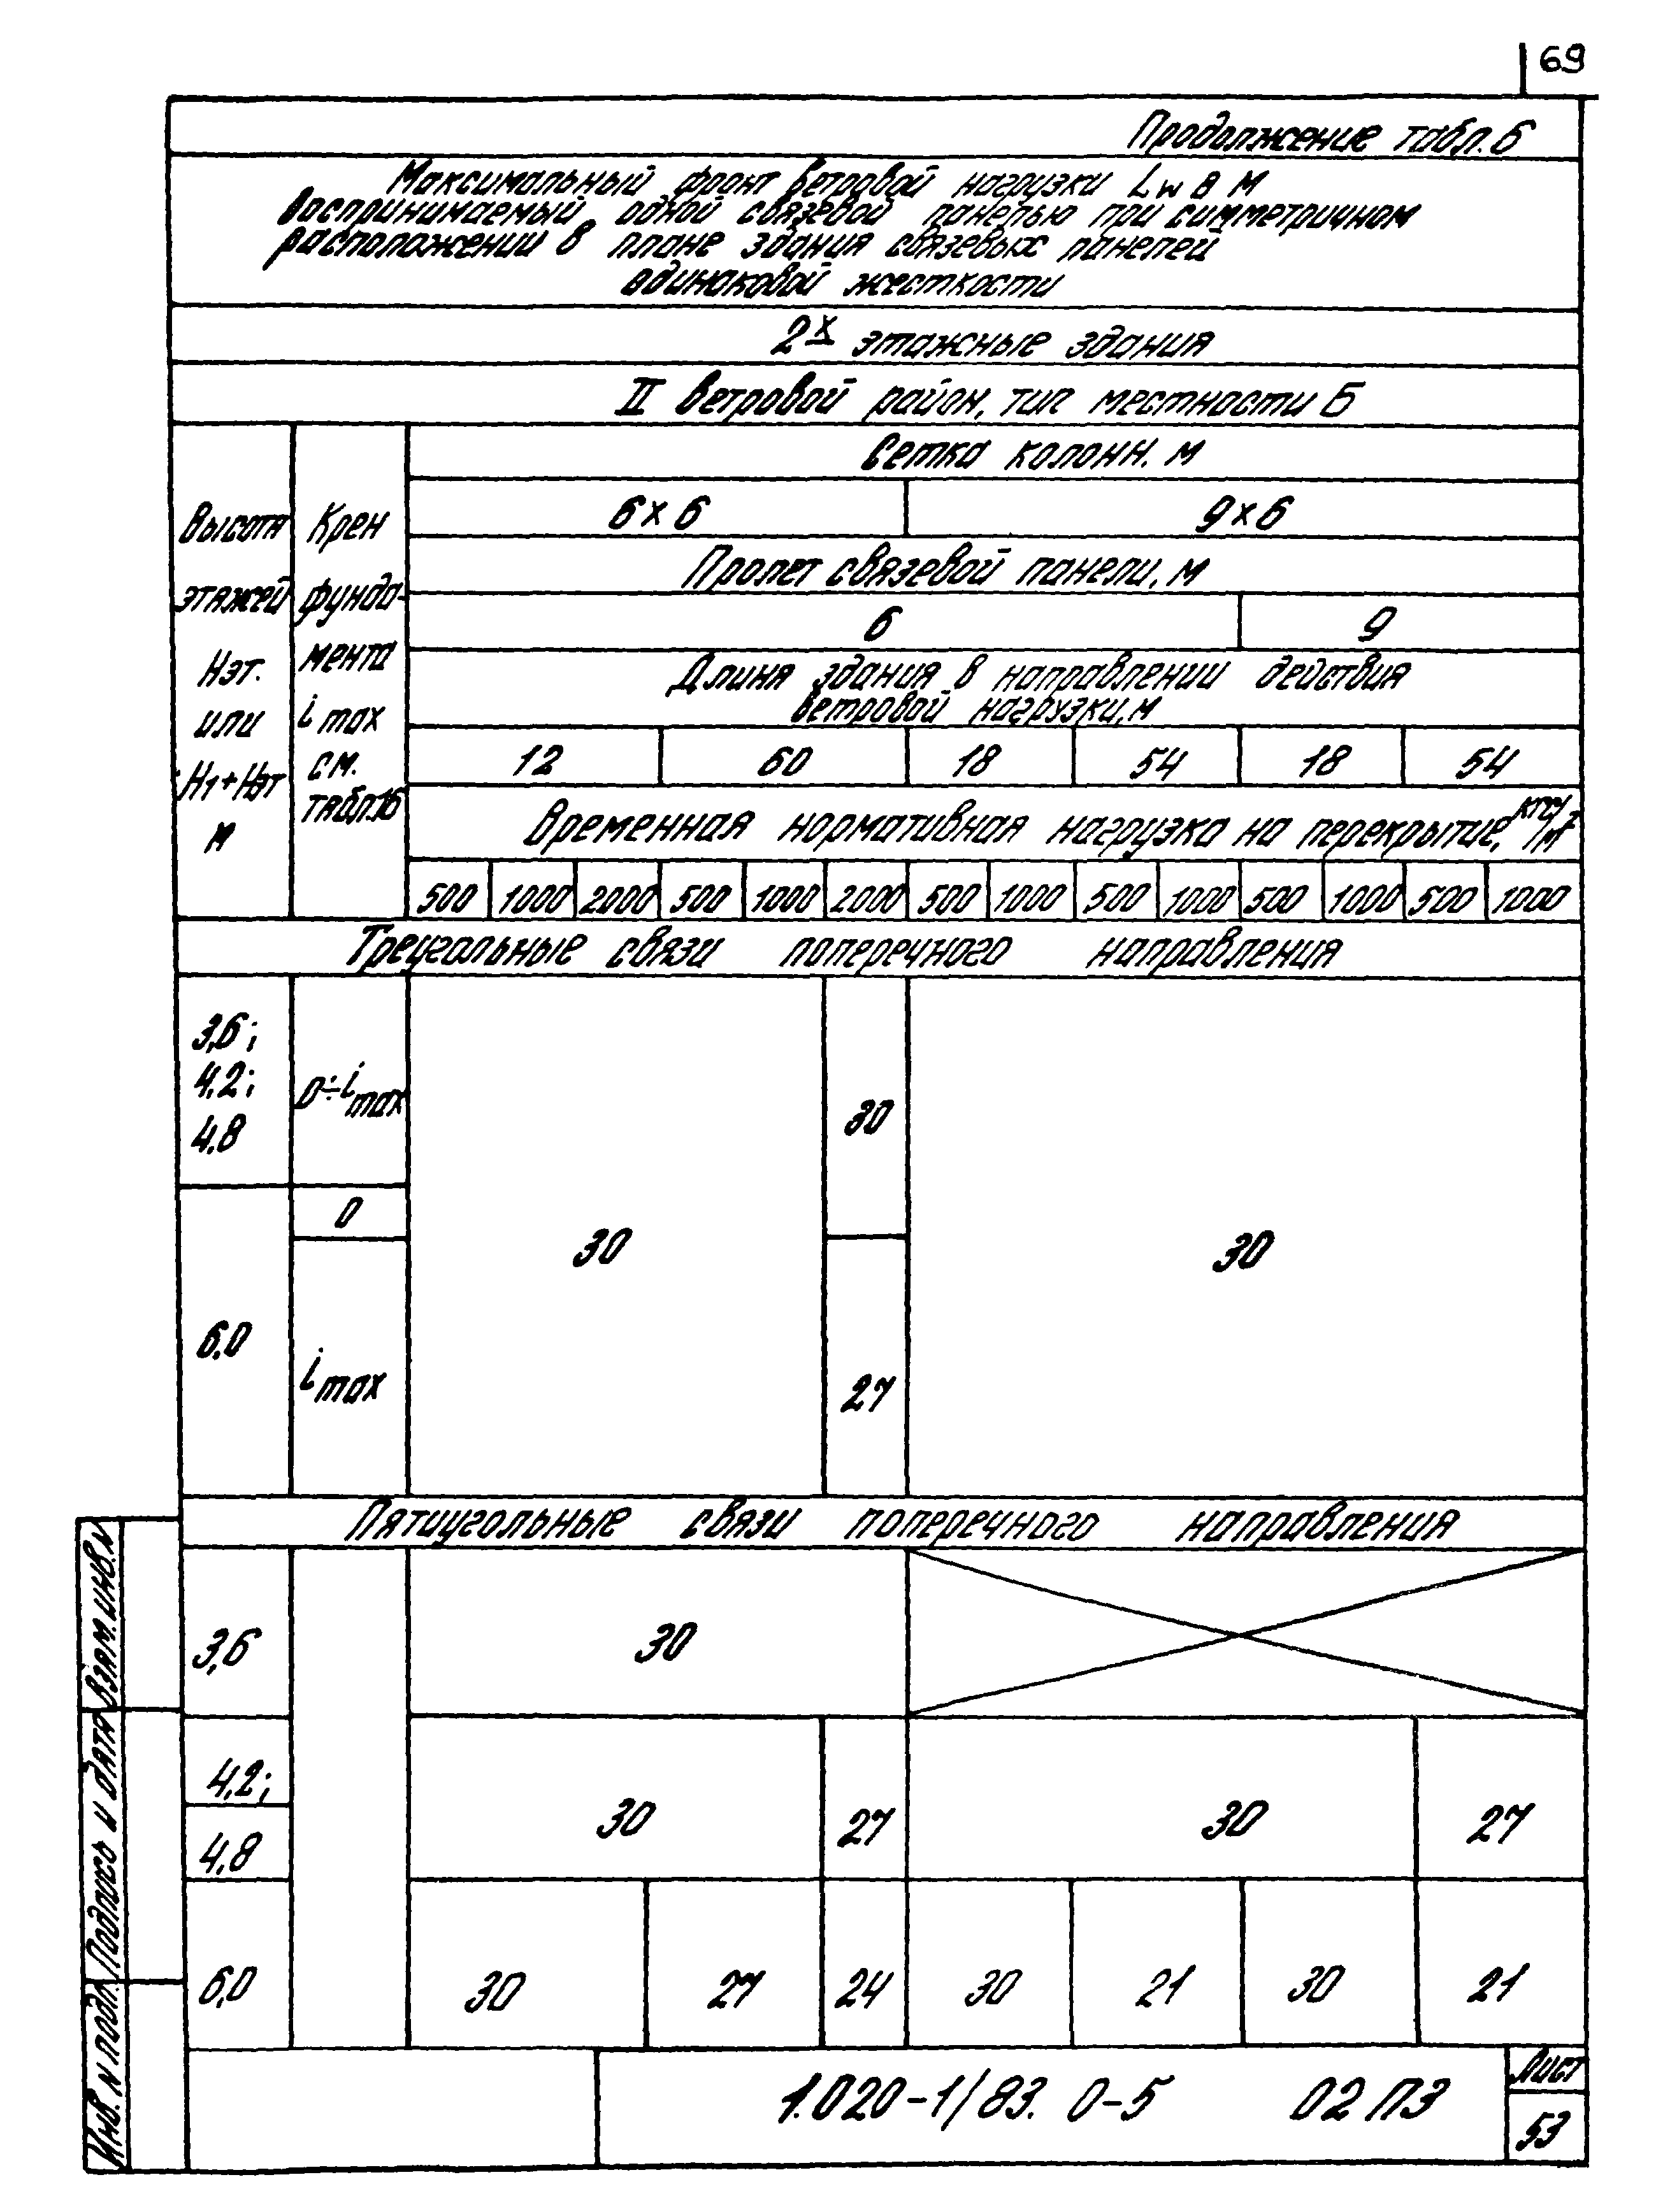 69
Продолжение табл.6
Максимальный фронт ветровой нагрузки Lw в м
воспринимаемый одной связевой панелью при симметричном
расположении в плане здания связевых панелей
одинаковой жесткости
2х этажные здания
II ветровой район, тип местности Б
Высота
этажей
Нэт.
или
Н1+Нэт
м
Крен
фунда-
мента
i max
см.
табл.16
Сетка колонн. м
6×6 9×6
Пролет связевой панели, м
6 9
Длина здания в направлении действия
ветровой нагрузки, м
12 60 18 54 18 54
Временная нормативная нагрузка на перекрытие, кгс/м²
500 1000 2000 500 1000 2000 500 1000 500 1000 500 1000 500 1000
Треугольные связи поперечного направления
3,6;
4,2;
4,8
0÷i max
30
0
30
30
6,0
i max
27
Пятиугольные связи поперечного направления
3,6
30
4,2;
4,8
30 27 30 27
6,0
30 27 24 30 21 30 21
1.020-1/83. 0-5 02 ПЗ
Лист
53
Взам. инв. N
Подпись и дата
Инв. N подл.